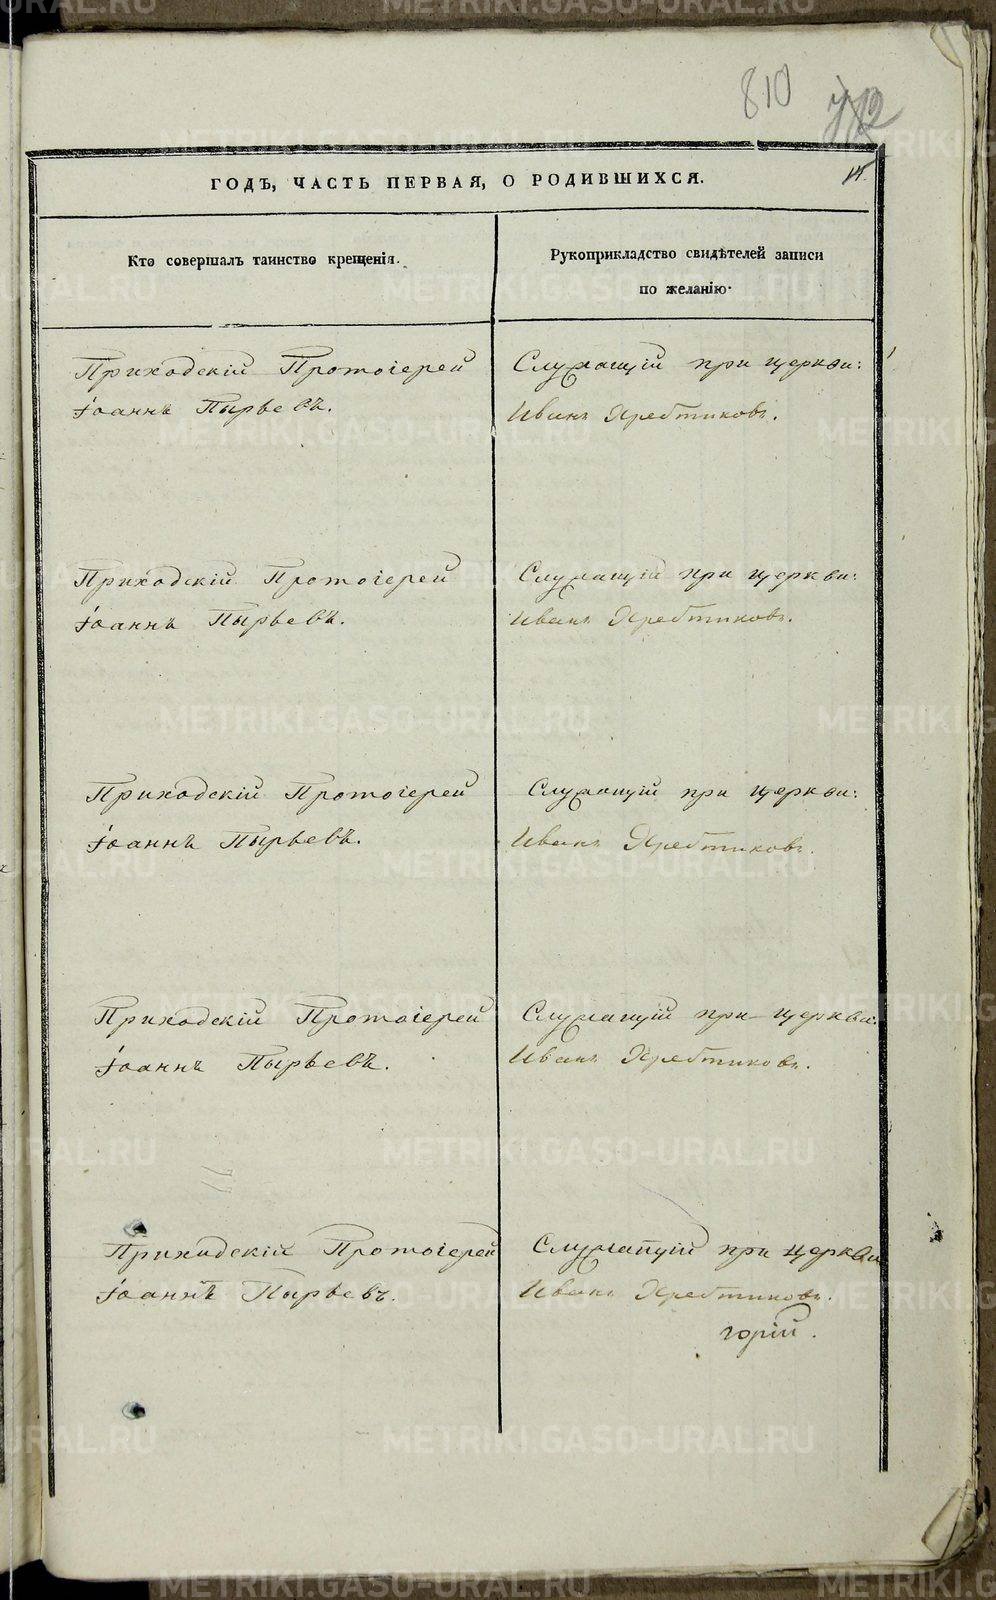 810
ГОДЪ, ЧАСТЬ ПЕРВАЯ, О РОДИВШИХСЯ.
Кто совершалъ таинство крещенія.
Рукоприкладство свидѣтелей записи
по желанію.
Приходскій Протоіерей
Іоаннъ Пырьевъ.
Служащій при церкви:
Иванъ Хребтиковъ.
Приходскій Протоіерей
Іоаннъ Пырьевъ.
Служащій при церкви:
Иванъ Хребтиковъ.
Приходскій Протоіерей
Іоаннъ Пырьевъ.
Служащій при церкви:
Иванъ Хребтиковъ.
Приходскій Протоіерей
Іоаннъ Пырьевъ.
Служащій при церкви:
Иванъ Хребтиковъ.
Приходскій Протоіерей
Іоаннъ Пырьевъ.
Служащій при церкви
Иванъ Хребтиковъ.
горій.
METRIKI.GASO-URAL.RU